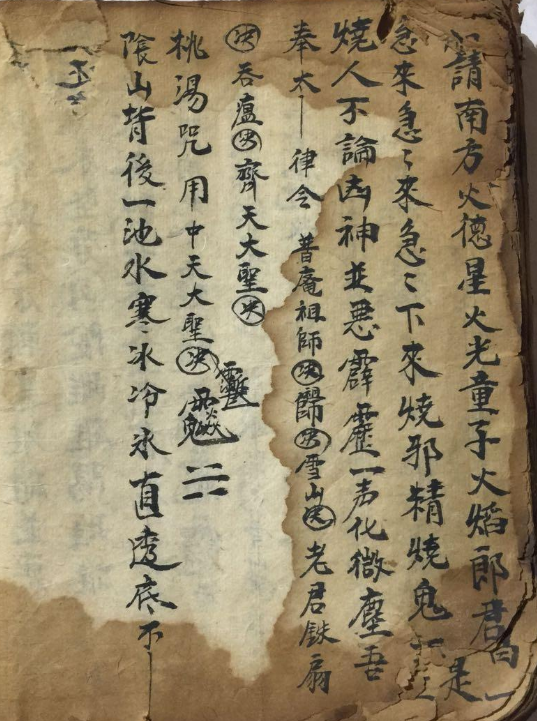 請南方火德星火光童子火焰郎君
急来急〻来急〻下来燒邪精燒鬼
燒人不論凶神並惡霹靂一声化微塵吾
奉太 律令 普庵祖師㊋歸㊋雪山㊋老君鉄扇
吞廬 齊天大聖
桃湯咒用中天大聖
陰山背後一池水寒冰冷氷直透底不